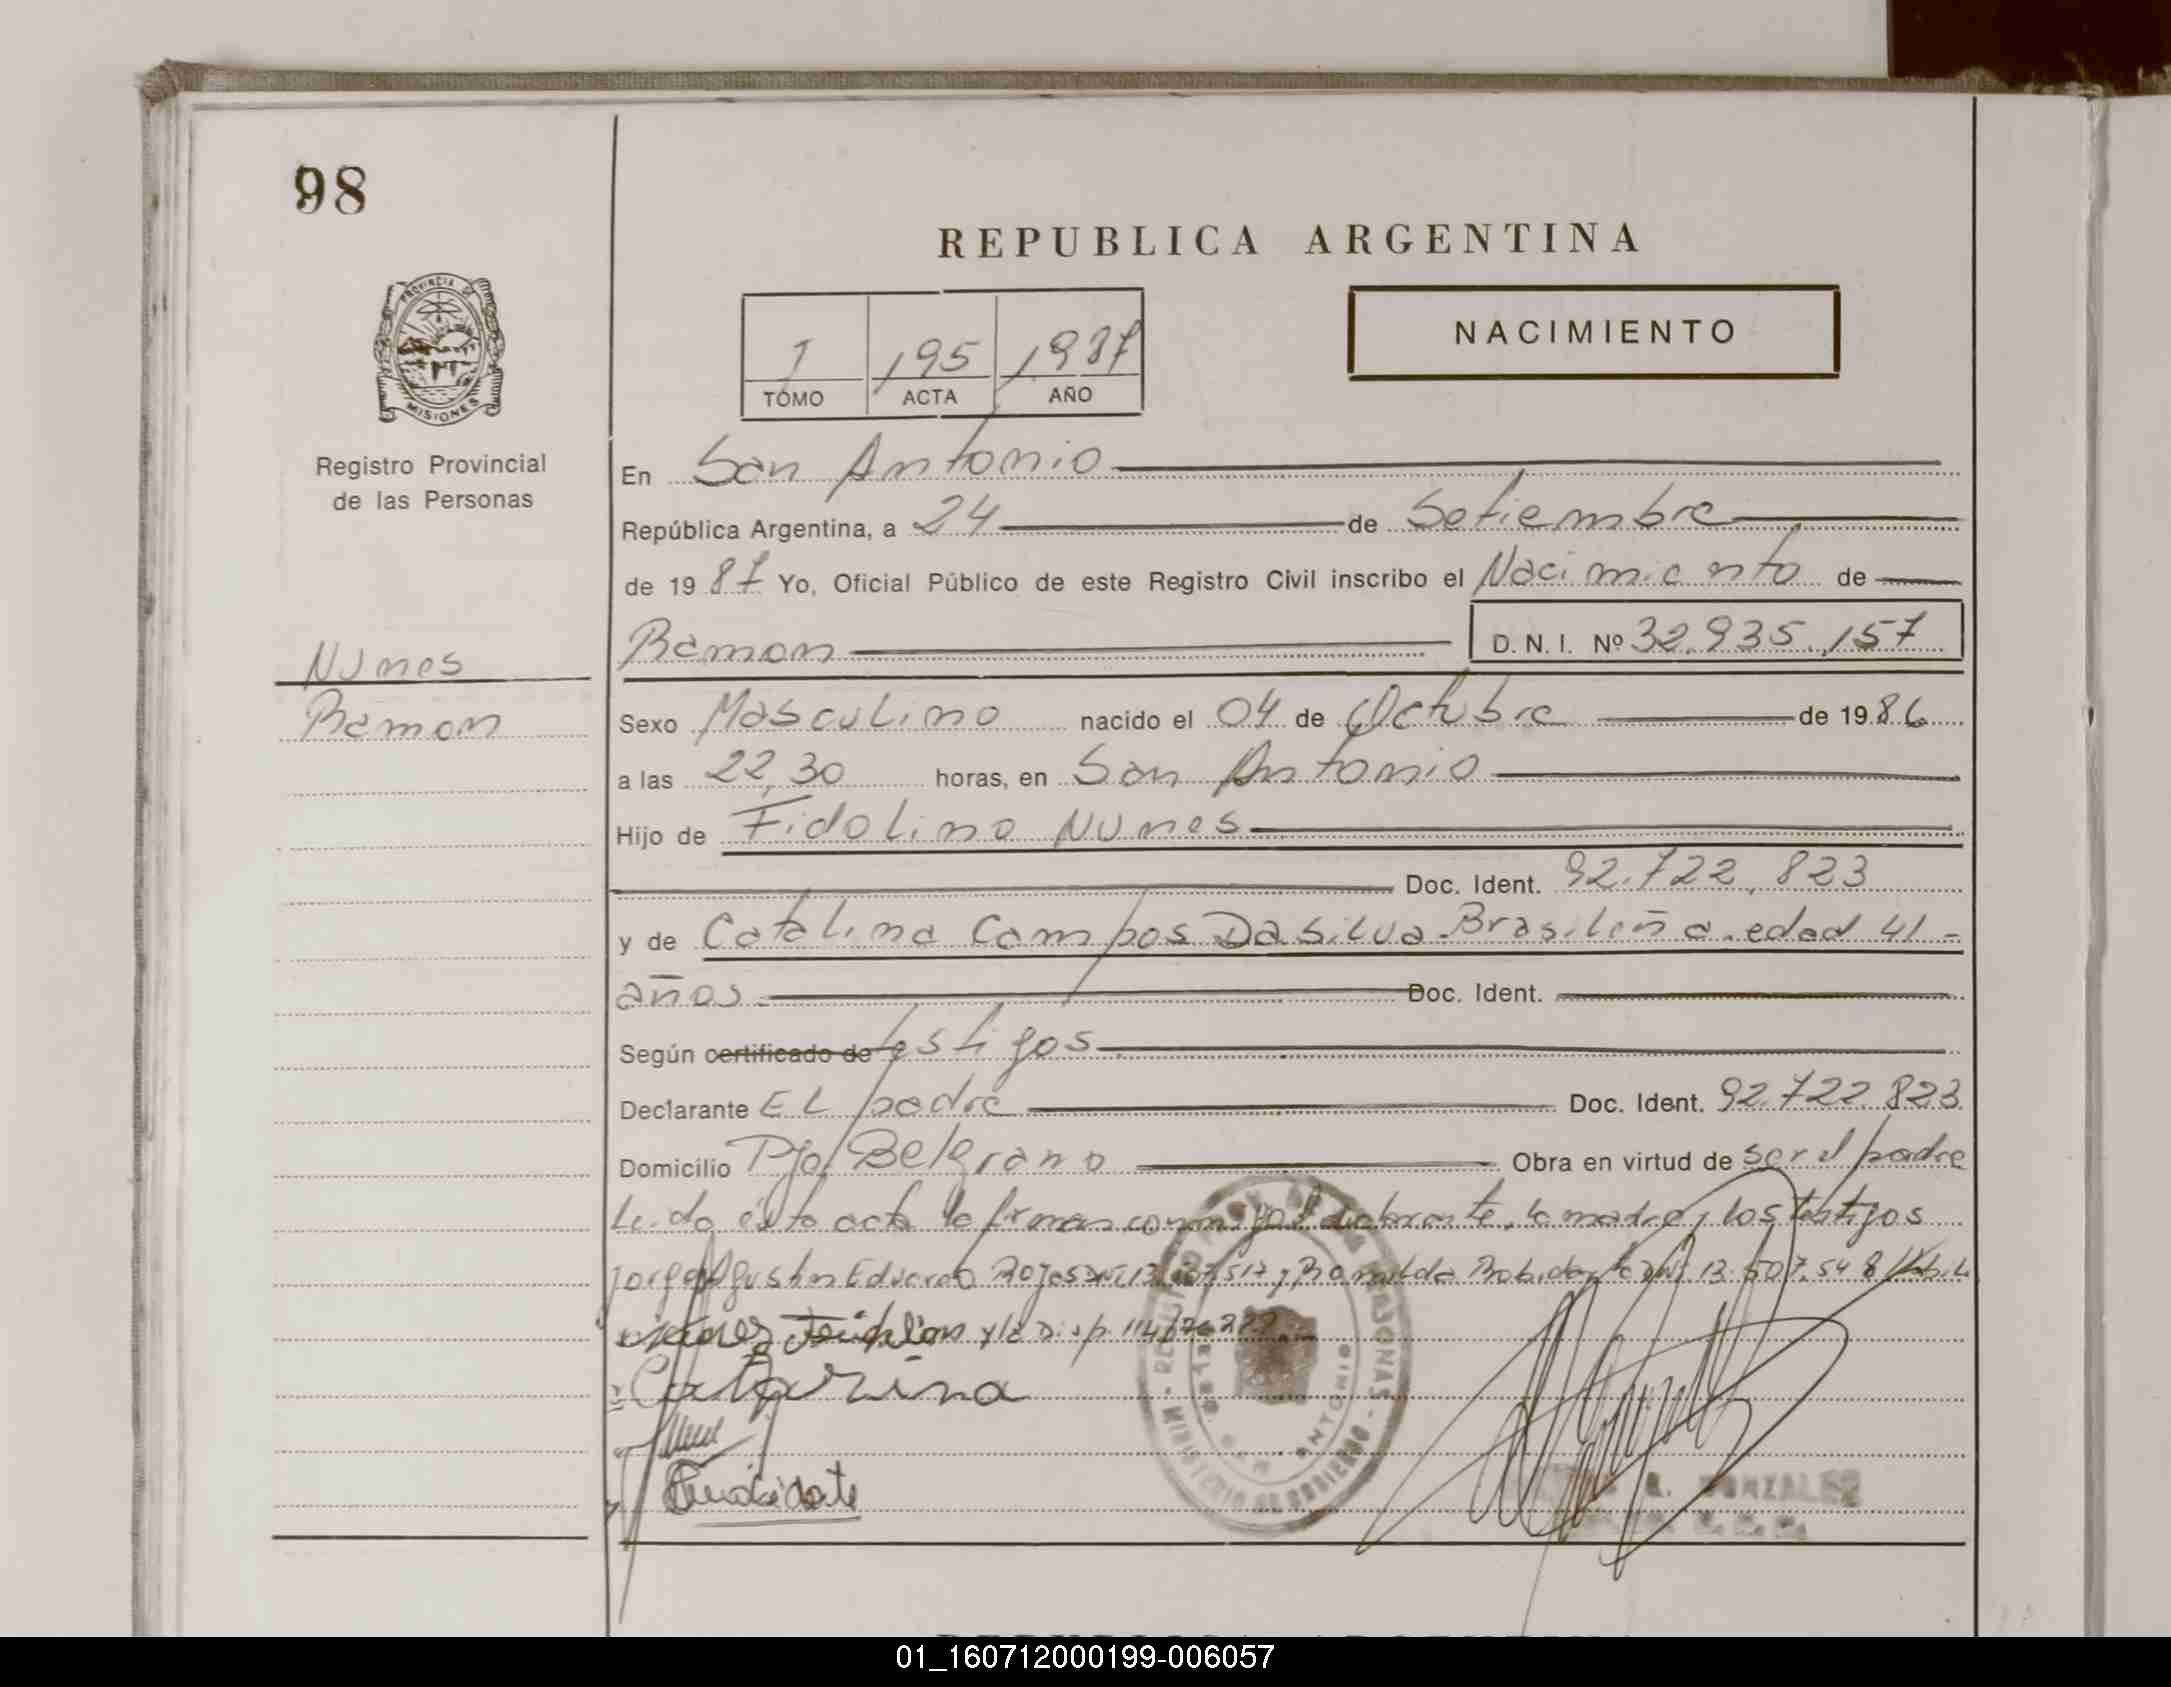 98
REPUBLICA ARGENTINA
NACIMIENTO
1 195 1987
TOMO ACTA AÑO
PROVINCIA DE MISIONES
Registro Provincial
de las Personas
En San Antonio
República Argentina, a 24 de Setiembre
de 19 87 Yo, Oficial Público de este Registro Civil inscribo el Nacimiento de
Ramon D. N. I. Nº 32.935.157
Nunes
Ramon
Sexo Masculino nacido el 04 de Octubre de 19 86
a las 22,30 horas, en San Antonio
Hijo de Fidolino Nunes
Doc. Ident. 92.722.823
y de Catalina Campos Dasilva - Brasileña. edad 41 -
años. Doc. Ident.
Según certificado de testigos
Declarante El padre Doc. Ident. 92.722.823
Domicilio Pje Belgrano Obra en virtud de ser el padre
Leida esta acta la firman conmigo el declarante, la madre y los testigos
Jorge Agustin Eduardo Rojas y Romilda 13.507.548
Catarina
MINISTERIO DE GOBIERNO
SAN ANTONIO
R. GONZALEZ
01_160712000199-006057